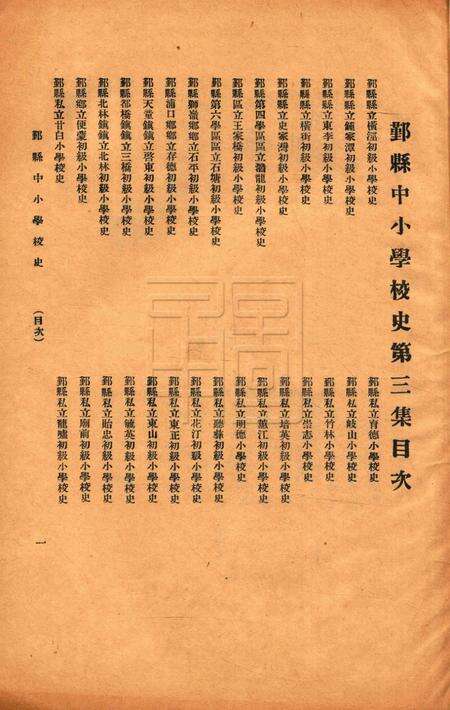 鄞縣中小學校史第三集目次
鄞縣縣立橫涇初級小學校史
鄞縣縣立鍾家潭初級小學校史
鄞縣縣立東李初級小學校史
鄞縣縣立橫街初級小學校史
鄞縣縣立史家灣初級小學校史
鄞縣第四學區區立潛龍初級小學校史
鄞縣區立王家橋初級小學校史
鄞縣第六學區區立石塘初級小學校史
鄞縣獅嶺鄉鄉立石平初級小學校史
鄞縣浦口鄉鄉立存德初級小學校史
鄞縣天童鎮鎮立啓東初級小學校史
鄞縣郡橋鎮鎮立三橋初級小學校史
鄞縣北林鎮鎮立北林初級小學校史
鄞縣鄉立便蒙初級小學校史
鄞縣私立甘白小學校史
鄞縣私立育德小學校史
鄞縣私立岐山小學校史
鄞縣私立竹林小學校史
鄞縣私立崇志小學校史
鄞縣私立培英初級小學校史
鄞縣私立董江初級小學校史
鄞縣私立明德小學校史
鄞縣私立聽彝初級小學校史
鄞縣私立花汀初級小學校史
鄞縣私立東正初級小學校史
鄞縣私立東山初級小學校史
鄞縣私立毓英初級小學校史
鄞縣私立貽忠初級小學校史
鄞縣私立廟前初級小學校史
鄞縣私立龍嘯初級小學校史
鄞縣中小學校史 （目次） 一